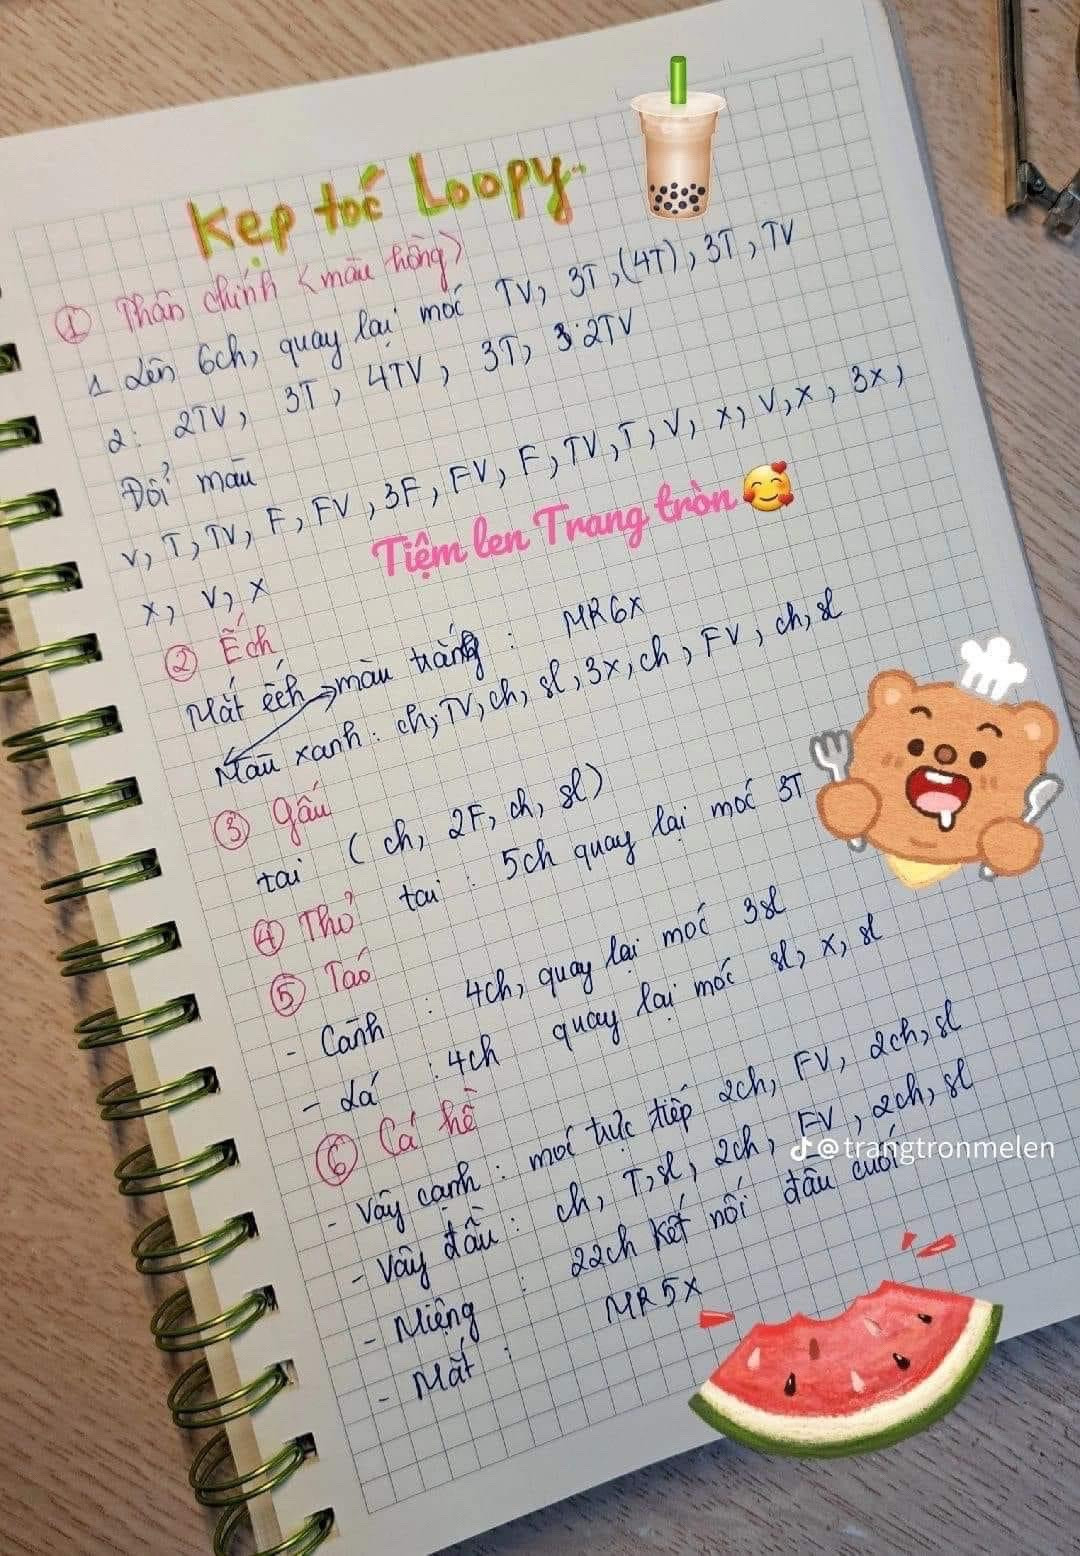 Kẹp tóc Loopy
① Thân chính <màu hồng>
1 Lên 6ch, quay lại móc TV, 3T, (4T), 3T, TV
2: 2TV, 3T, 4TV, 3T, 2TV
Đổi màu
V, T, TV, F, FV, 3F, FV, F, TV, T, V, X, V, X, 3X,
X, V, X
Tiệm len Trang tròn 🥰
② Ếch
Mắt ếch → màu trắng : MR6X
Màu xanh: ch, TV, ch, sl, 3X, ch, FV, ch, sl
③ Gấu
tai (ch, 2F, ch, sl)
④ Thỏ tai : 5ch quay lại móc 3T
⑤ Táo
- Cành : 4ch, quay lại móc 3sl
- Lá : 4ch quay lại móc sl, X, sl
⑥ Cá hề
- Vây cạnh : móc trực tiếp 2ch, FV, 2ch, sl
- Vây đầu : ch, T, sl, 2ch, FV, 2ch, sl
@trangtronmelen
- Miệng : 22ch kết nối đầu cuối
- Mắt : MR5X